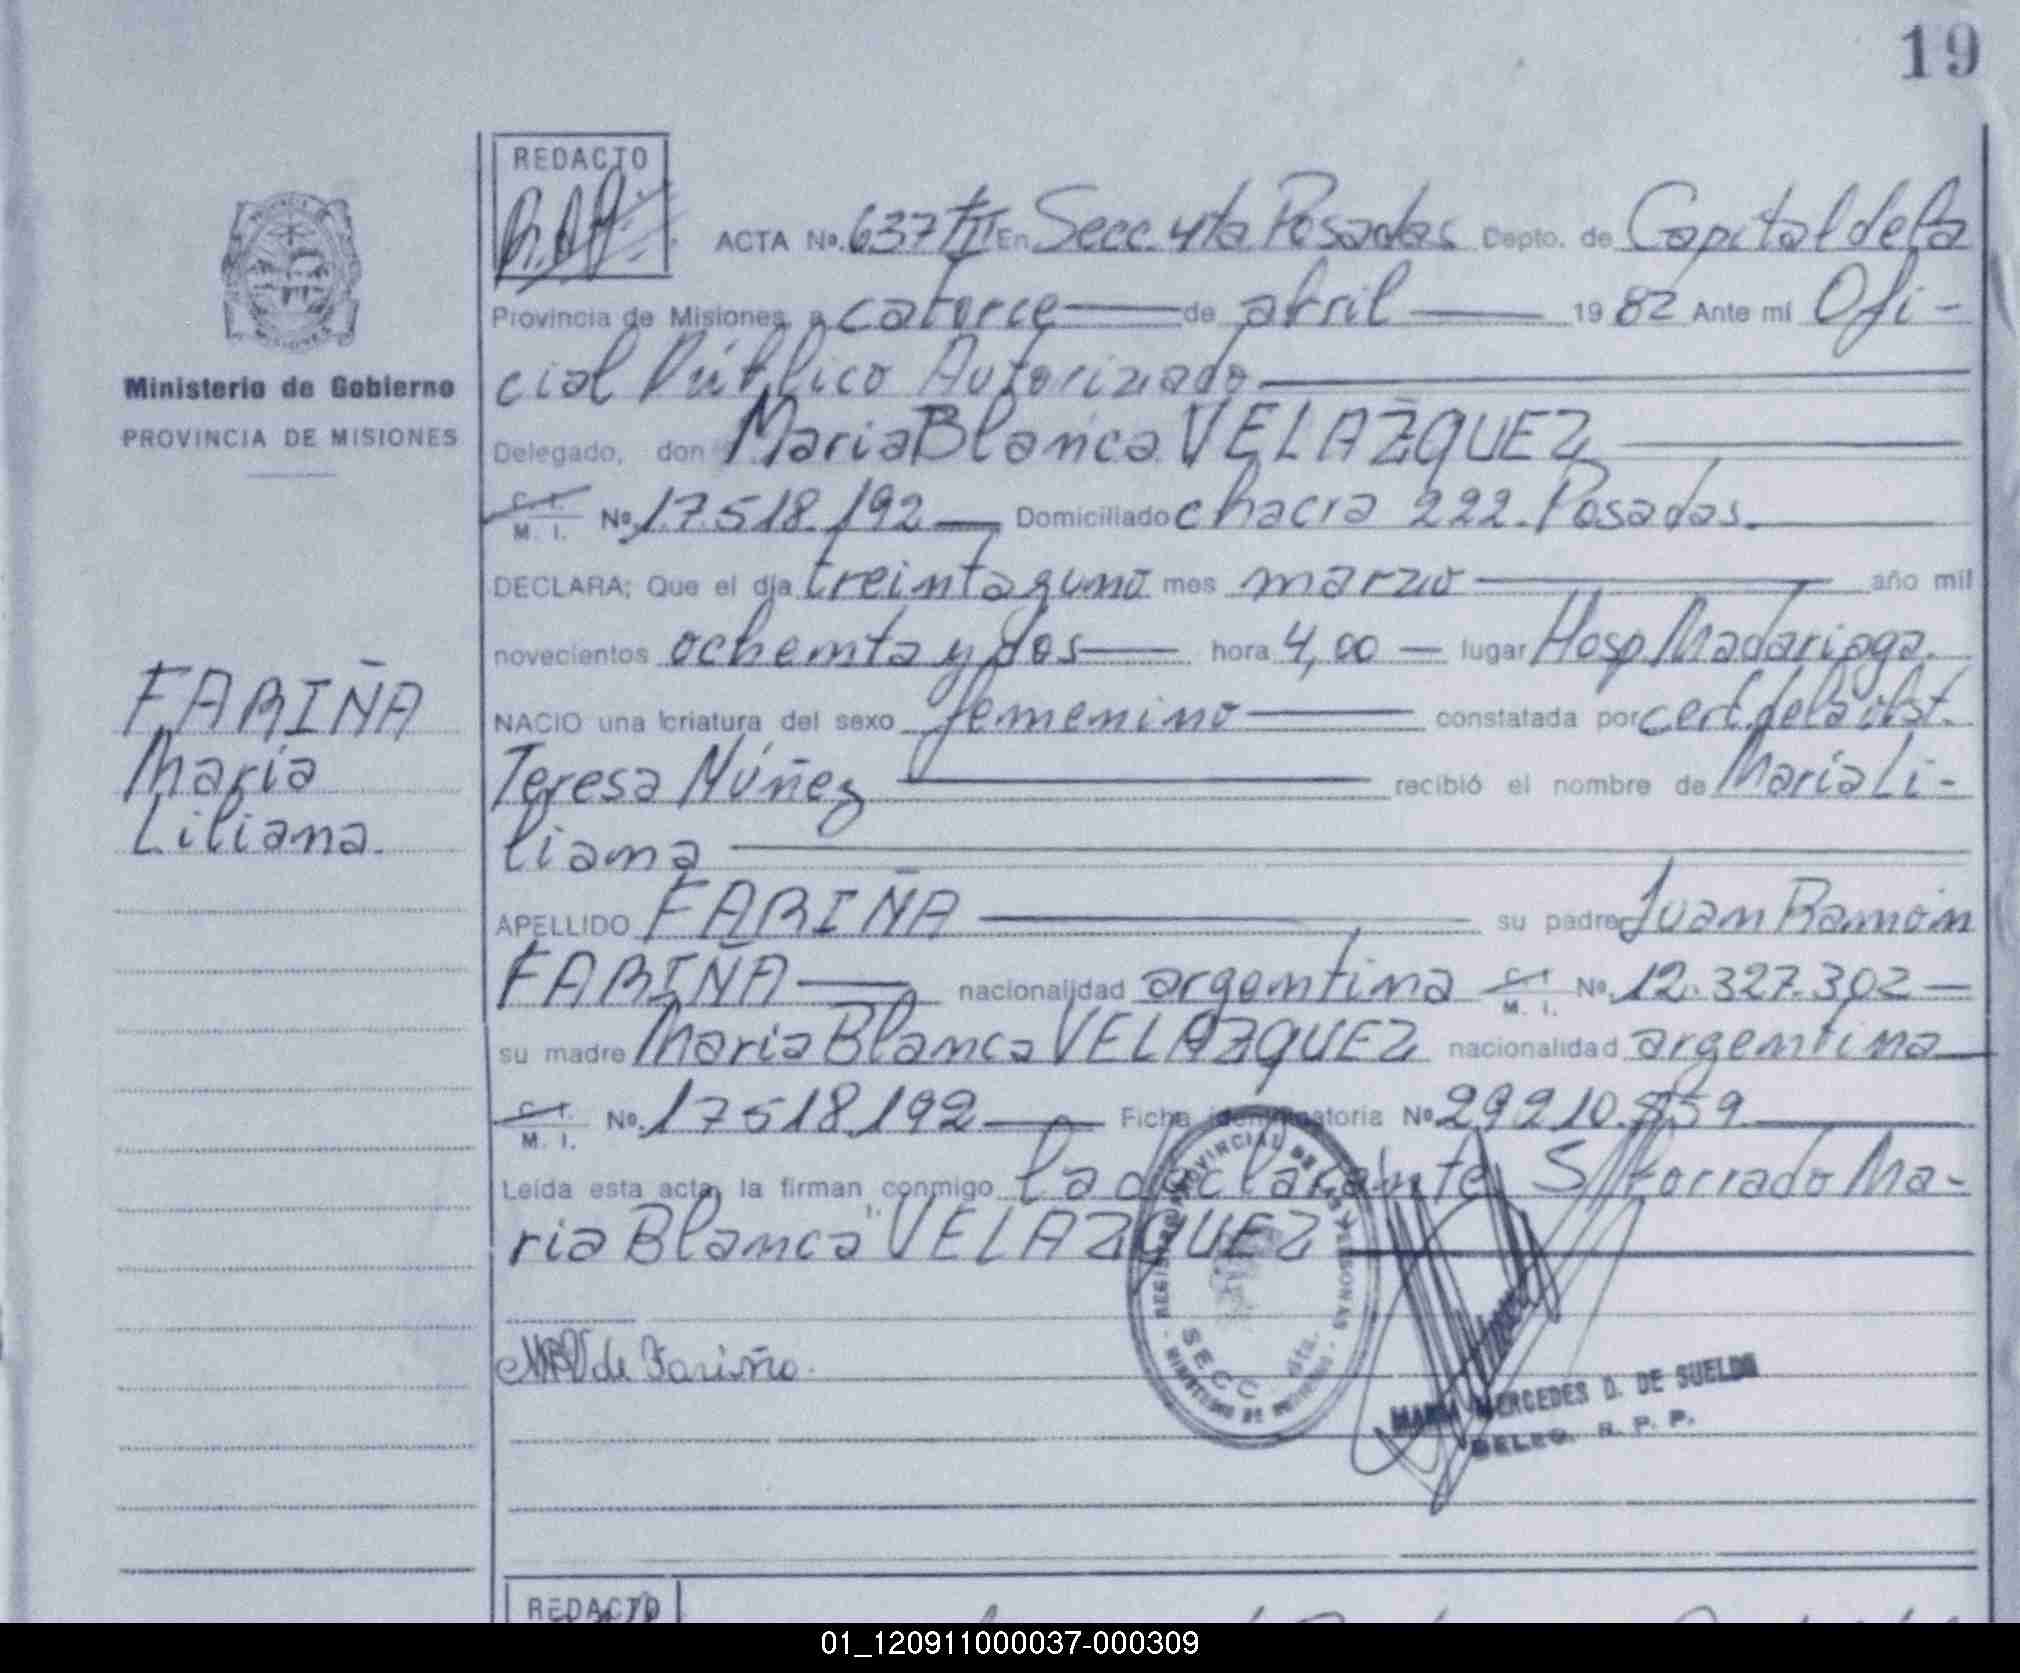 19
REDACTO
ACTA Nº. 637 tII En Secc. 4ta Posadas Depto. de Capital de la
Provincia de Misiones a catorce de abril 1982 Ante mí Ofi-
cial Público Autorizado
Delegado, don Maria Blanca VELAZQUEZ
C. I. M. I. Nº 17.518.192 Domiciliado chacra 222. Posadas.
DECLARA; Que el día treinta y uno mes marzo año mil
novecientos ochenta y dos hora 4,00 lugar Hosp Madariaga.
NACIO una criatura del sexo femenino constatada por cert. de la obst.
Teresa Núñez recibió el nombre de María Li-
liana
APELLIDO FARIÑA su padre Juan Ramón
FARIÑA nacionalidad argentina C. I. M. I. Nº. 12.327.302
su madre Maria Blanca VELAZQUEZ nacionalidad argentina
C. I. M. I. Nº. 17518.192 Ficha identificatoria Nº 29210.859
Leída esta acta, la firman conmigo la declarante S/borrado Ma-
ria Blanca VELAZQUEZ
MBV de Fariña.
Ministerio de Gobierno
PROVINCIA DE MISIONES
FARIÑA
María
Liliana.
REGISTRO PROVINCIAL DE LAS PERSONAS
SECC. 4ta.
MARIA MERCEDES D. DE SUELDO
DELEG. R. P. P.
REDACTO
01_120911000037-000309